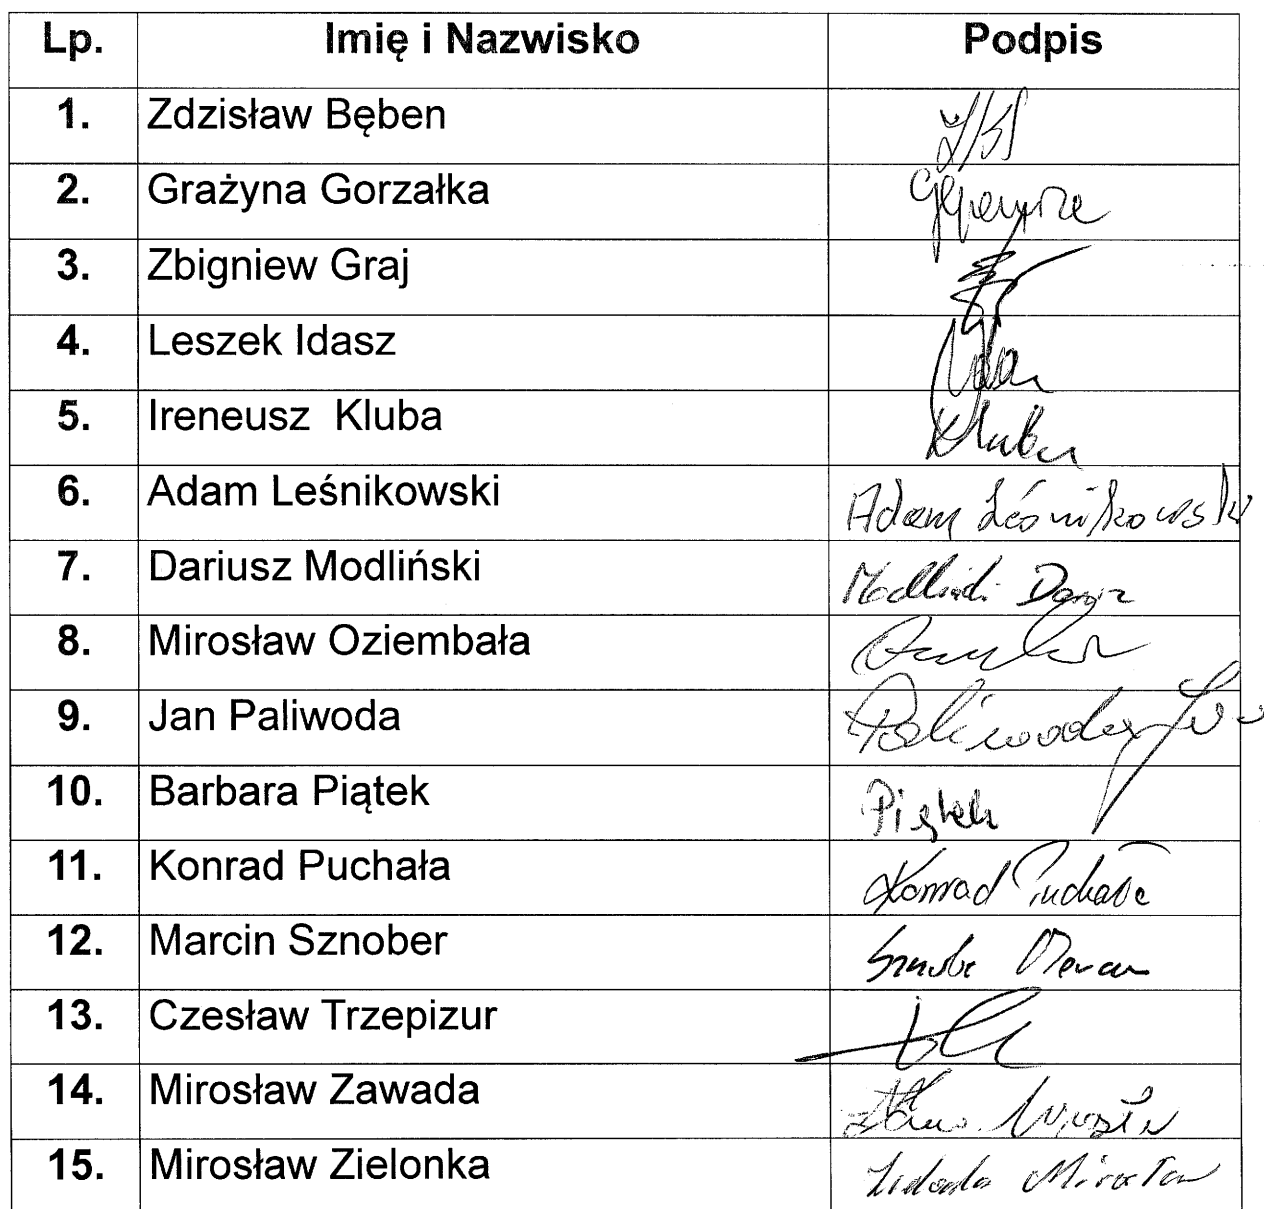 Lp. Imię i Nazwisko Podpis
1. Zdzisław Bęben
2. Grażyna Gorzałka
3. Zbigniew Graj
4. Leszek Idasz
5. Ireneusz Kluba Kluba
6. Adam Leśnikowski Adam Leśnikowski
7. Dariusz Modliński
8. Mirosław Oziembała
9. Jan Paliwoda Paliwoda Jan
10. Barbara Piątek Piątek
11. Konrad Puchała Konrad Puchała
12. Marcin Sznober
13. Czesław Trzepizur
14. Mirosław Zawada
15. Mirosław Zielonka Zielonka Mirosław